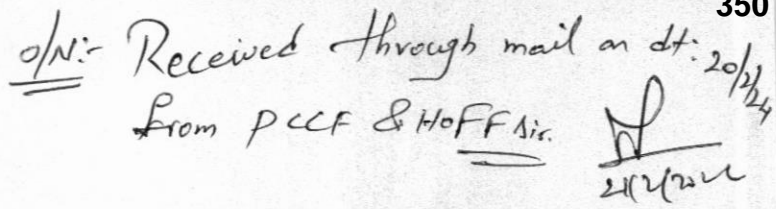 350
O/N:- Received through mail on dt: 20/2/24
from PCCF & HOFF Sir.